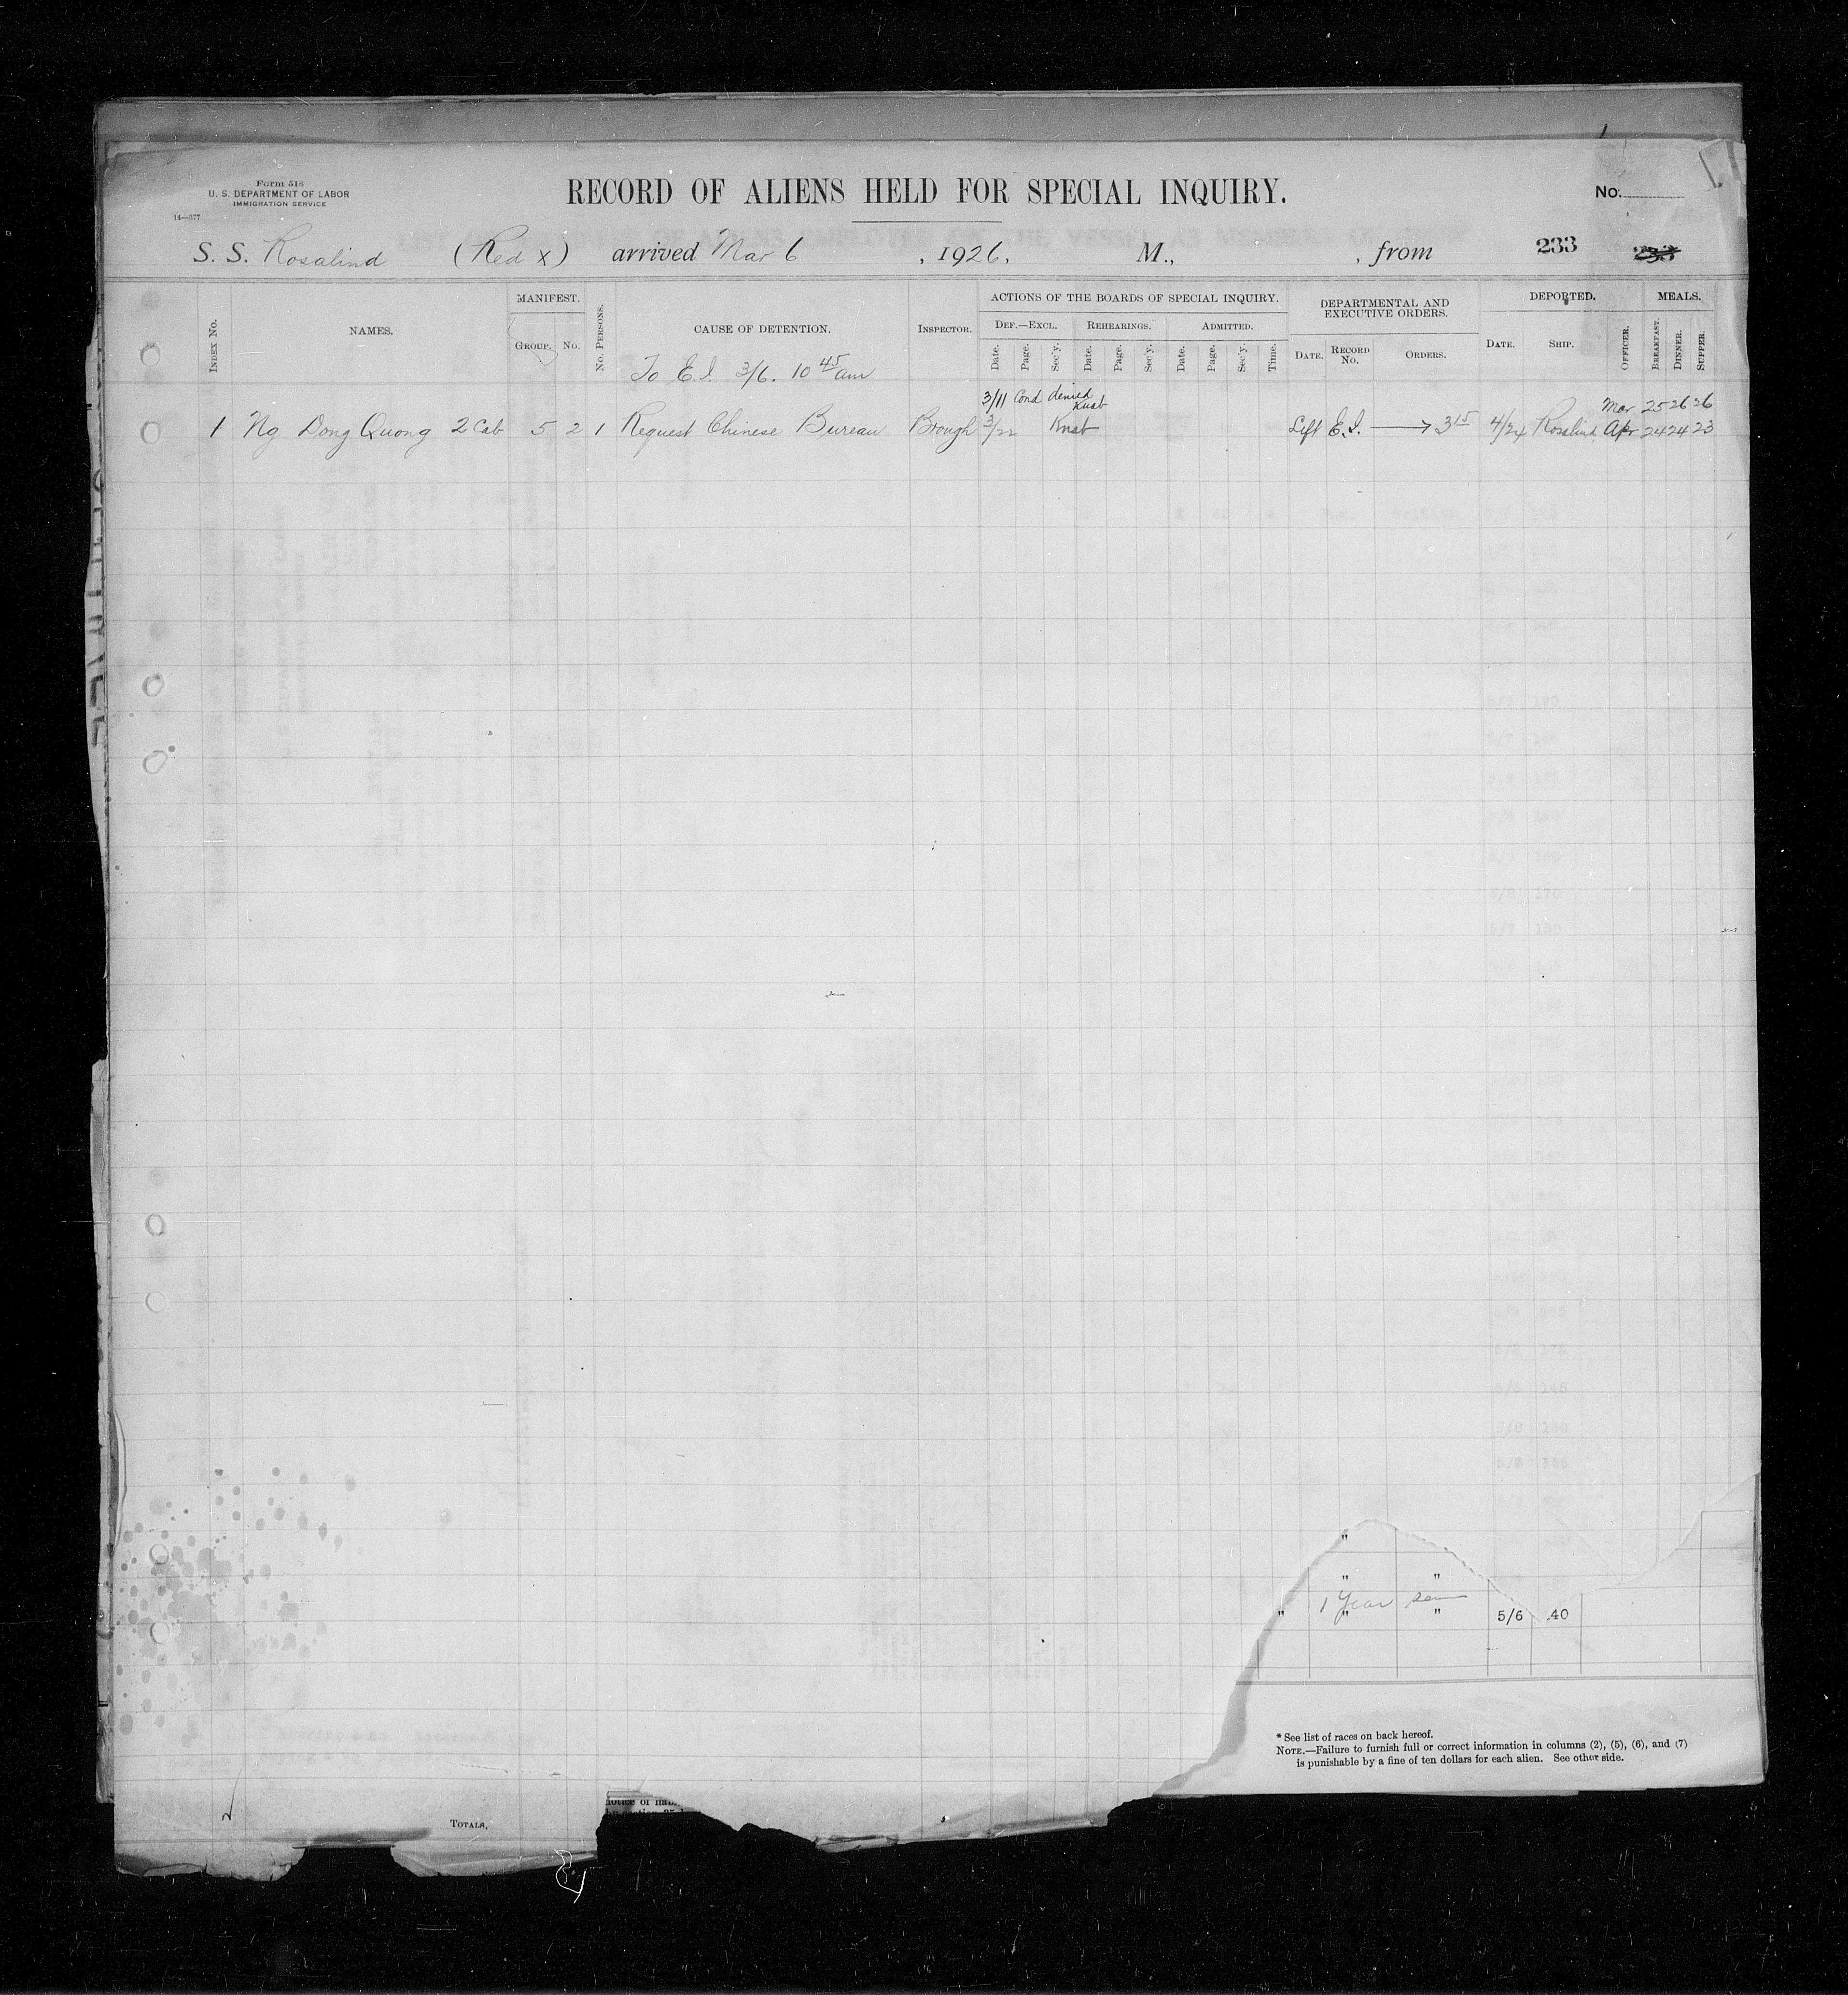 Form 518
U. S. DEPARTMENT OF LABOR
IMMIGRATION SERVICE
14—377
RECORD OF ALIENS HELD FOR SPECIAL INQUIRY.
No.
S. S. Rosalind (Red x) arrived Mar 6, 1926, M., , from 233 233
INDEX No.
NAMES.
MANIFEST.
GROUP. No.
No. PERSONS.
CAUSE OF DETENTION.
INSPECTOR.
ACTIONS OF THE BOARDS OF SPECIAL INQUIRY.
DEF.—EXCL. REHEARINGS. ADMITTED.
Date. Page. Sec'y. Date. Page. Sec'y. Date. Page. Sec'y. Time.
DEPARTMENTAL AND
EXECUTIVE ORDERS.
DATE. RECORD No. ORDERS.
DEPORTED.
DATE. SHIP. OFFICER.
MEALS.
BREAKFAST. DINNER. SUPPER.
To E.I. 3/6. 10 45 am
3/11 Cond denied Knab Mar 25 26 26
1 Ng Dong Quong 2 Cab 5 2 1 Request Chinese Bureau Brough 3/22 Knab Left E.I. → 3 15 4/24 Rosalind Apr 24 24 23
"
" "
1 Year
" " " 5/6 40
* See list of races on back hereof.
NOTE.—Failure to furnish full or correct information in columns (2), (5), (6), and (7)
is punishable by a fine of ten dollars for each alien. See other side.
notice of
TOTALS,